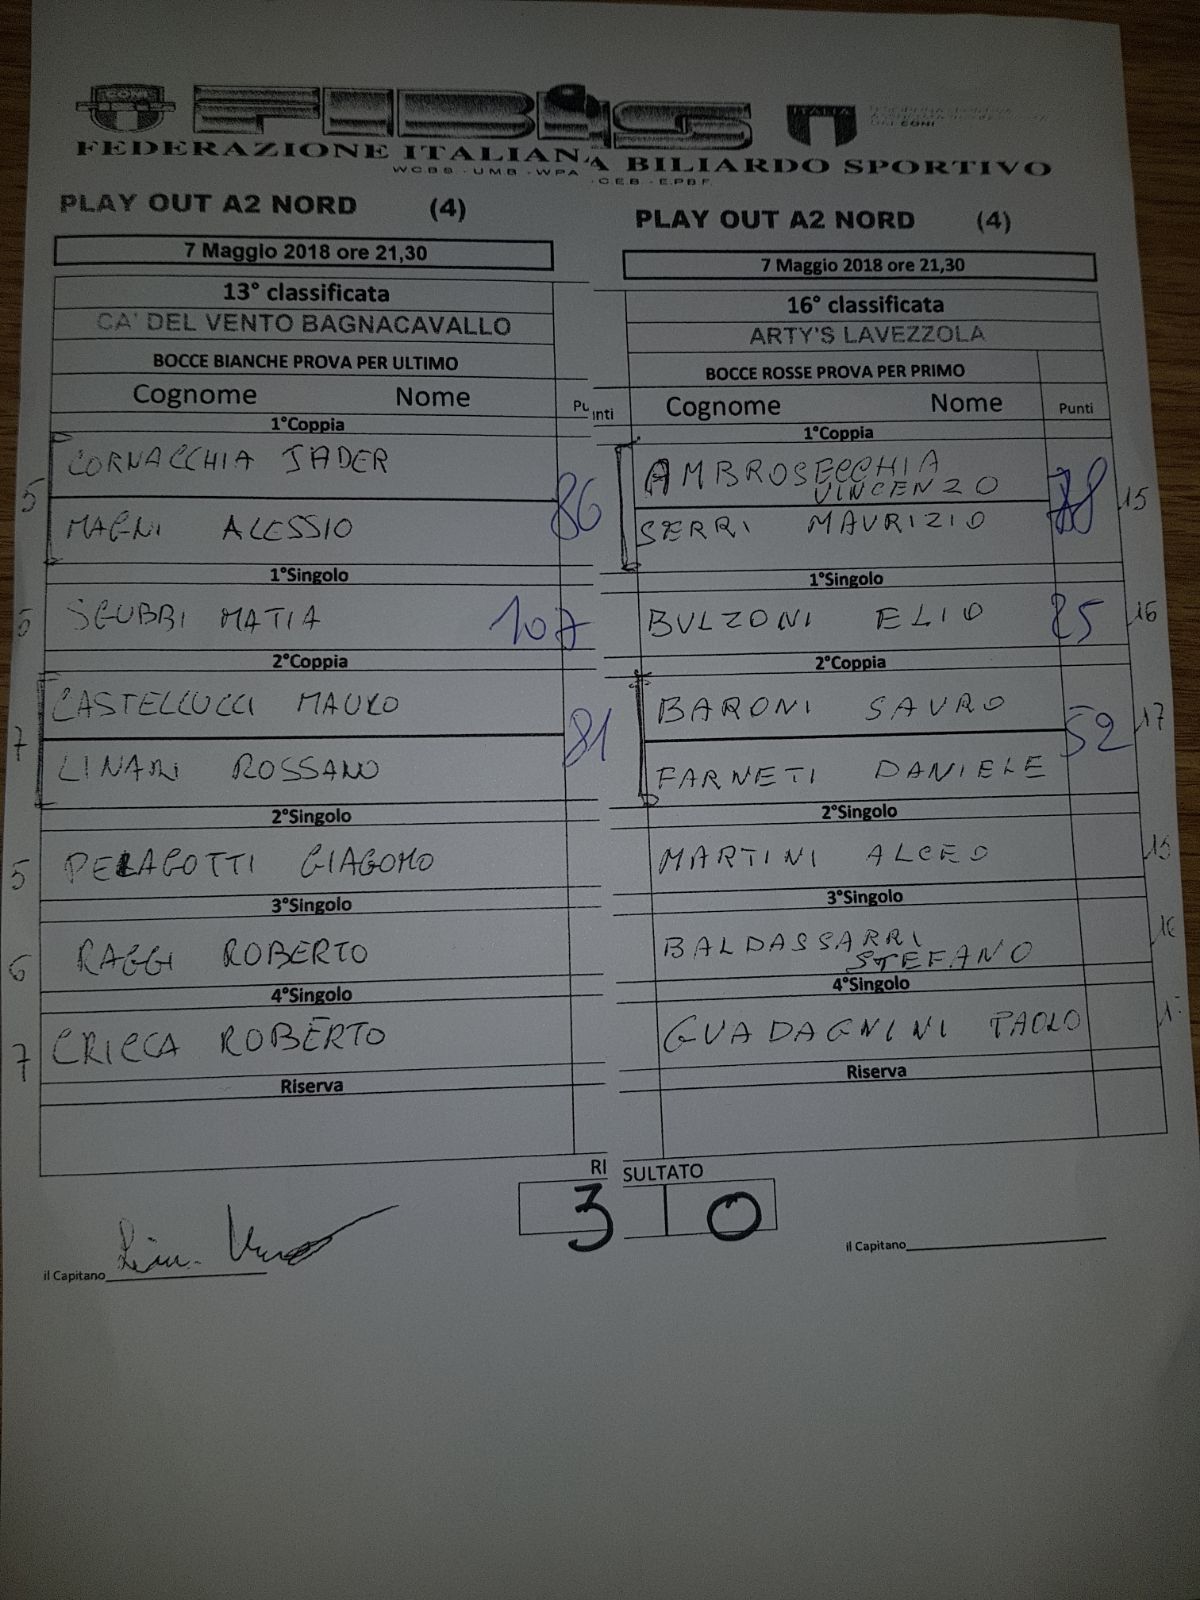 CONI
FIBiS
ITALIA
CONI
FEDERAZIONE ITALIANA BILIARDO SPORTIVO
WCBS - UMB - WPA - C.E.B. - E.P.B.F.
PLAY OUT A2 NORD (4)
7 Maggio 2018 ore 21,30
13° classificata
CA' DEL VENTO BAGNACAVALLO
BOCCE BIANCHE PROVA PER ULTIMO
Cognome Nome Pu
1°Coppia
CORNACCHIA JADER
5 86
MAGNI ALESSIO
1°Singolo
SGUBBI MATIA 107
2°Coppia
CASTELLUCCI MAURO
7 81
LINARI ROSSANO
2°Singolo
5 PELAGOTTI GIAGOMO
3°Singolo
6 RAGGI ROBERTO
4°Singolo
7 CRICCA ROBERTO
Riserva
PLAY OUT A2 NORD (4)
7 Maggio 2018 ore 21,30
16° classificata
ARTY'S LAVEZZOLA
BOCCE ROSSE PROVA PER PRIMO
nti Cognome Nome Punti
1°Coppia
AMBROSECCHIA
VINCENZO
15
SERRI MAURIZIO
1°Singolo
BULZONI ELIO 25 16
2°Coppia
BARONI SAURO
52 17
FARNETI DANIELE
2°Singolo
MARTINI ALCEO 15
3°Singolo
BALDASSARRI
STEFANO
4°Singolo
GUADAGNINI PAOLO
Riserva
RI SULTATO
3 0
il Capitano
il Capitano